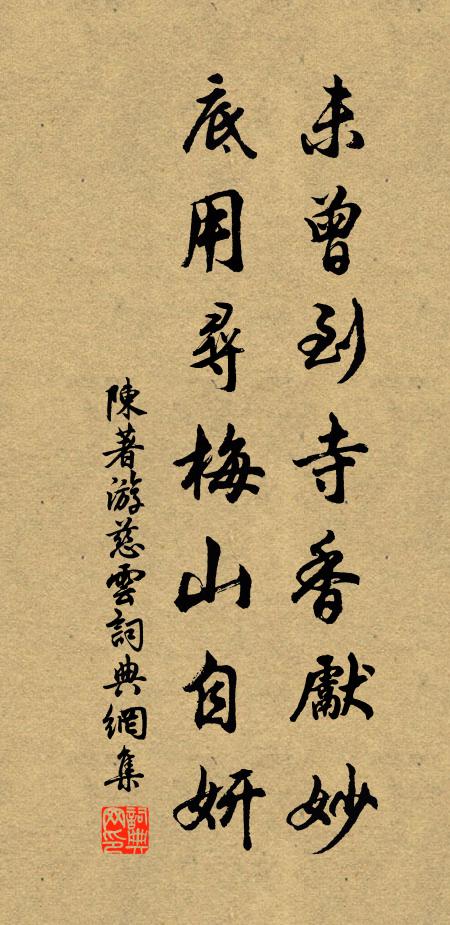 未曾到寺香獻妙
底用尋梅山自妍
陳著游慈雲詞典網集
詞典網印